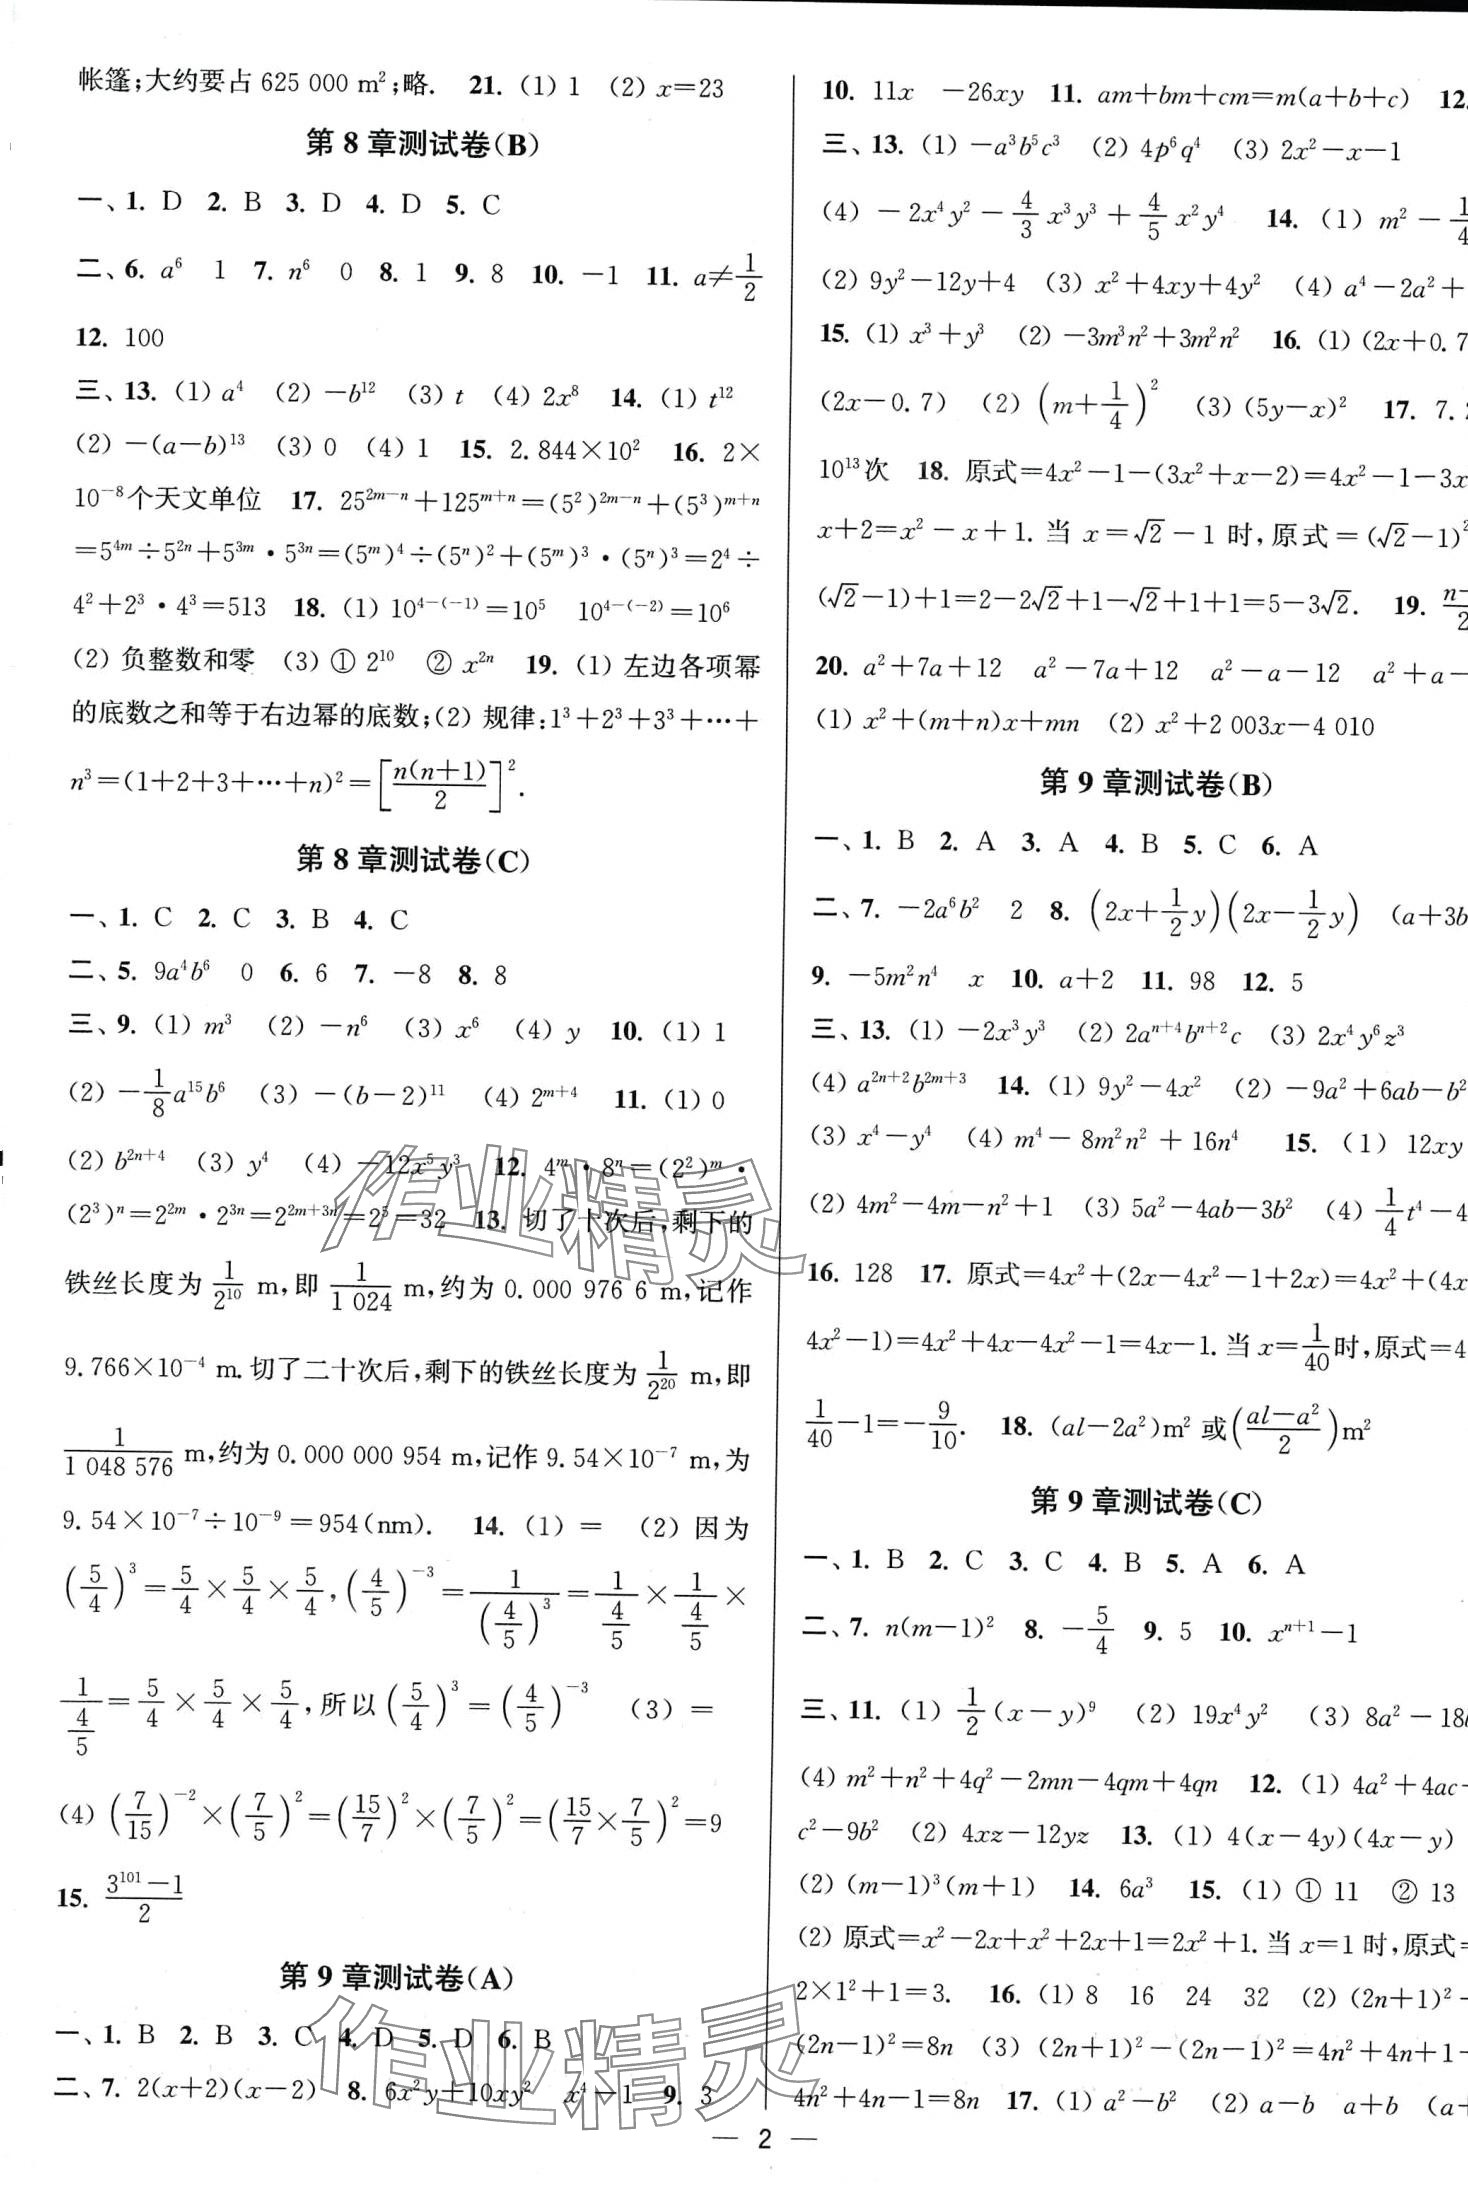 帐篷;大约要占 625 000 m²;略. 21. (1) 1 (2) x=23
第 8 章测试卷(B)
一、1. D 2. B 3. D 4. D 5. C
二、6. a⁶ 1 7. n⁶ 0 8. 1 9. 8 10. −1 11. a≠1/2
12. 100
三、13. (1) a⁴ (2) −b¹² (3) t (4) 2x⁸ 14. (1) t¹²
(2) −(a−b)¹³ (3) 0 (4) 1 15. 2.844×10² 16. 2×
10⁻⁸个天文单位 17. 25^(2m−n)+125^(m+n)=(5²)^(2m−n)+(5³)^(m+n)
=5^(4m)÷5^(2n)+5^(3m)·5^(3n)=(5^m)⁴÷(5^n)²+(5^m)³·(5^n)³=2⁴÷
4²+2³·4³=513 18. (1) 10^(4−(−1))=10⁵ 10^(4−(−2))=10⁶
(2) 负整数和零 (3) ① 2¹⁰ ② x^(2n) 19. (1) 左边各项幂
的底数之和等于右边幂的底数;(2) 规律:1³+2³+3³+···+
n³=(1+2+3+···+n)²=[n(n+1)/2]².
第 8 章测试卷(C)
一、1. C 2. C 3. B 4. C
二、5. 9a⁴b⁶ 0 6. 6 7. −8 8. 8
三、9. (1) m³ (2) −n⁶ (3) x⁶ (4) y 10. (1) 1
(2) −1/8 a¹⁵b⁶ (3) −(b−2)¹¹ (4) 2^(m+4) 11. (1) 0
(2) b^(2n+4) (3) y⁴ (4) −12x⁵y³ 12. 4^m·8^n=(2²)^m·
(2³)^n=2^(2m)·2^(3n)=2^(2m+3n)=2⁵=32 13. 切了十次后,剩下的
铁丝长度为 1/2¹⁰ m,即 1/1 024 m,约为 0.000 976 6 m,记作
9.766×10⁻⁴ m.切了二十次后,剩下的铁丝长度为 1/2²⁰ m,即
1/1 048 576 m,约为 0.000 000 954 m,记作 9.54×10⁻⁷ m,为
9.54×10⁻⁷÷10⁻⁹=954(nm). 14. (1) = (2) 因为
(5/4)³=5/4×5/4×5/4,(4/5)⁻³=1/(4/5)³=1/(4/5)×1/(4/5)×
1/(4/5)=5/4×5/4×5/4,所以(5/4)³=(4/5)⁻³ (3) =
(4) (7/15)⁻²×(7/5)²=(15/7)²×(7/5)²=(15/7×7/5)²=9
15. (3¹⁰¹−1)/2
第 9 章测试卷(A)
一、1. B 2. B 3. C 4. D 5. D 6. B
二、7. 2(x+2)(x−2) 8. 6x²y+10xy² x⁴−1 9. 3
10. 11x −26xy 11. am+bm+cm=m(a+b+c) 12.
三、13. (1) −a³b⁵c³ (2) 4p⁶q⁴ (3) 2x²−x−1
(4) −2x⁴y²−4/3 x³y³+4/5 x²y⁴ 14. (1) m²−1/4
(2) 9y²−12y+4 (3) x²+4xy+4y² (4) a⁴−2a²+
15. (1) x³+y³ (2) −3m³n²+3m²n² 16. (1) (2x+0.7
(2x−0.7) (2) (m+1/4)² (3) (5y−x)² 17. 7.
10¹³次 18. 原式=4x²−1−(3x²+x−2)=4x²−1−3x
x+2=x²−x+1.当 x=√2−1 时,原式=(√2−1)²
(√2−1)+1=2−2√2+1−√2+1+1=5−3√2. 19.
20. a²+7a+12 a²−7a+12 a²−a−12 a²+a−
(1) x²+(m+n)x+mn (2) x²+2 003x−4 010
第 9 章测试卷(B)
一、1. B 2. A 3. A 4. B 5. C 6. A
二、7. −2a⁶b² 2 8. (2x+1/2 y)(2x−1/2 y) (a+3b
9. −5m²n⁴ x 10. a+2 11. 98 12. 5
三、13. (1) −2x³y³ (2) 2a^(n+4)b^(n+2)c (3) 2x⁴y⁶z³
(4) a^(2n+2)b^(2m+3) 14. (1) 9y²−4x² (2) −9a²+6ab−b²
(3) x⁴−y⁴ (4) m⁴−8m²n²+16n⁴ 15. (1) 12xy
(2) 4m²−4m−n²+1 (3) 5a²−4ab−3b² (4) 1/4 t⁴−4
16. 128 17. 原式=4x²+(2x−4x²−1+2x)=4x²+(4x
4x²−1)=4x²+4x−4x²−1=4x−1.当 x=1/40时,原式=4
1/40−1=−9/10. 18. (al−2a²)m² 或((al−a²)/2)m²
第 9 章测试卷(C)
一、1. B 2. C 3. C 4. B 5. A 6. A
二、7. n(m−1)² 8. −5/4 9. 5 10. x^(n+1)−1
三、11. (1) 1/2(x−y)⁹ (2) 19x⁴y² (3) 8a²−18
(4) m²+n²+4q²−2mn−4qm+4qn 12. (1) 4a²+4ac
c²−9b² (2) 4xz−12yz 13. (1) 4(x−4y)(4x−y)
(2) (m−1)³(m+1) 14. 6a³ 15. (1) ① 11 ② 13
(2) 原式=x²−2x+x²+2x+1=2x²+1.当 x=1 时,原式=
2×1²+1=3. 16. (1) 8 16 24 32 (2) (2n+1)²−
(2n−1)²=8n (3) (2n+1)²−(2n−1)²=4n²+4n+1−
4n²+4n−1=8n 17. (1) a²−b² (2) a−b a+b (a+
— 2 —
作业精灵
作业精灵